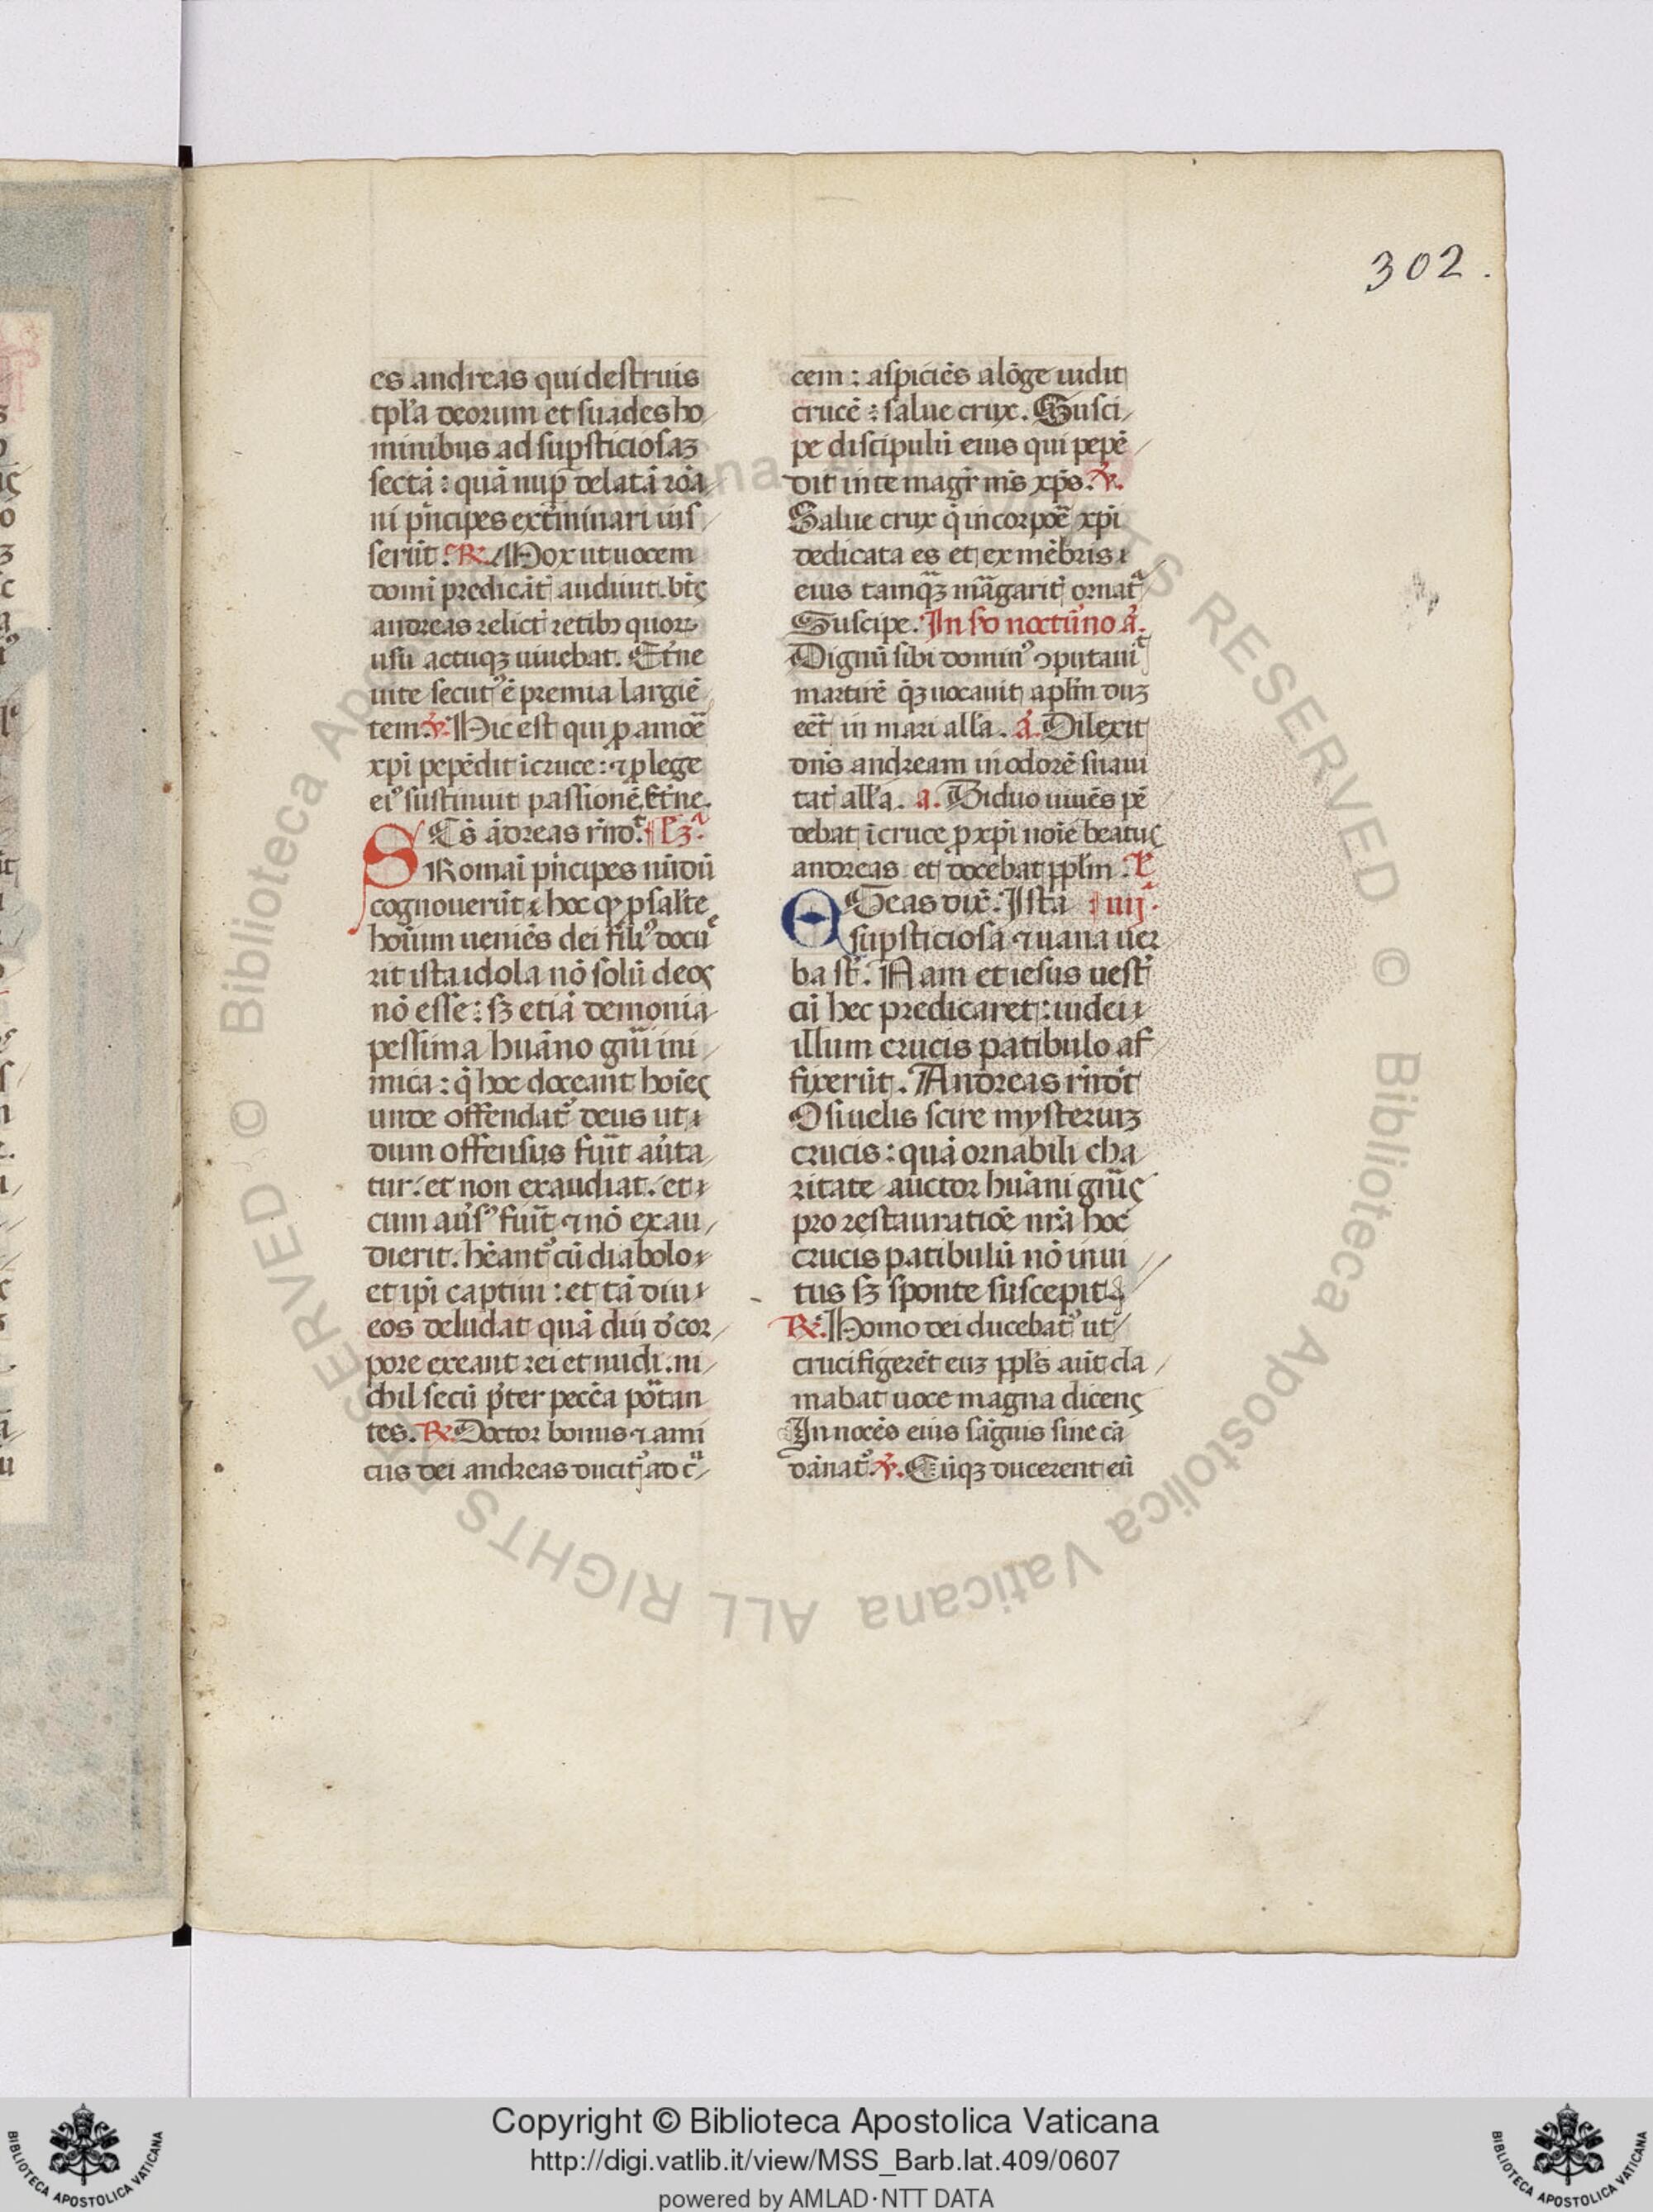 302.
es andreas qui destruis
tpl'a deorum et suades ho
minibus ad supsticiosaʒ
sectā : quā nup delatā roā
ni pⁱncipes extminari iuſ
serūt. ℟. Mox ut uocem
domī predicāt audiuit. bt̄ꝰ
andreas relict' retibꝫ quoꝝ
usu actuqꝫ uiuebat. Et̄ne
uite secut' ē premia largiē
tem. ℣. Hic est qui ꝓ amoē
xp̄i pepēdit ī cruce : ⁊ ꝓ lege
ei' sustinuit passionē. Et̄ne.
Sc̄s ādreas r̄ndᵗ. Lʒᵃ
Romāi pⁱncipes nūdū
cognouerūt hoc qꝫ ꝓ sal'te
hoīum ueniēs dei fili' docu
rit ista idola nō solū deos
nō esse : sꝫ etiā demonia
pessima huāno gn̄i ini
mica : q̄ hoc doceant hoīes
unde offendat' deus ut
dum offensus fuīt aūta
tur. et non exaudiat. et
cum aūs' fuīt ⁊ nō exau
dierit. hēant' cū diabolo
et ip̄i captiui : et tā diu
eos deludat quā diu d' cor
pore exeant rei et nudi. ni
chil secū p̄ter pecc̄a poᵃtan
tes. ℟. Doctor bonus ⁊ ami
cus dei andreas ducit' ad cᵃ
cem : aspiciēs alōge uidit
crucē : salue crux. Susci
pe discipulū eius qui pepē
dit in te magr̄ m̄s xp̄s. ℣.
Salue crux q̄ in corpoē xp̄i
dedicata es et ex mēbris
eius tamqᵃꝫ māgarit' ornatᵃ
Suscipe. In s̄o noctūno ā.
Dignū sibi domin' ꝯputauiᵗ
martirē q̄ꝫ uocauit ap̄lm̄ duʒ
eēt in mari all'a. ā. Dilexit
dn̄s andream in odorē suaui
tat' all'a. a. Biduo uiuēs pē
debat ī cruce ꝓ xp̄i noīe beatus
andreas et docebat pp̄lm̄. L
Egeas dix̄. Ista iiij.
supsticiosa ⁊ uana uer
ba st̄. Nam et iesus uest'
cū hec predicaret : iudei
illum crucis patibulo af
fixerūt. Andreas r̄ndit
O si uelis scire mysteriuʒ
crucis : quā ornabili cha
ritate auctor huāni gn̄is
pro restauratioē nr̄a hoc
crucis patibulū nō inui
tus sꝫ sponte suscepit.
℟. Homo dei ducebat' ut
crucifigerēt euʒ ppl's aūt cla
mabat uoce magna dicens
Innocēs eius sāguis sine cā
dānat'. ℣. Cūqꝫ ducerent eū
Copyright © Biblioteca Apostolica Vaticana
http://digi.vatlib.it/view/MSS_Barb.lat.409/0607
powered by AMLAD·NTT DATA
BIBLIOTECA APOSTOLICA VATICANA
BIBLIOTECA APOSTOLICA VATICANA
© Biblioteca Apostolica Vaticana ALL RIGHTS RESERVED